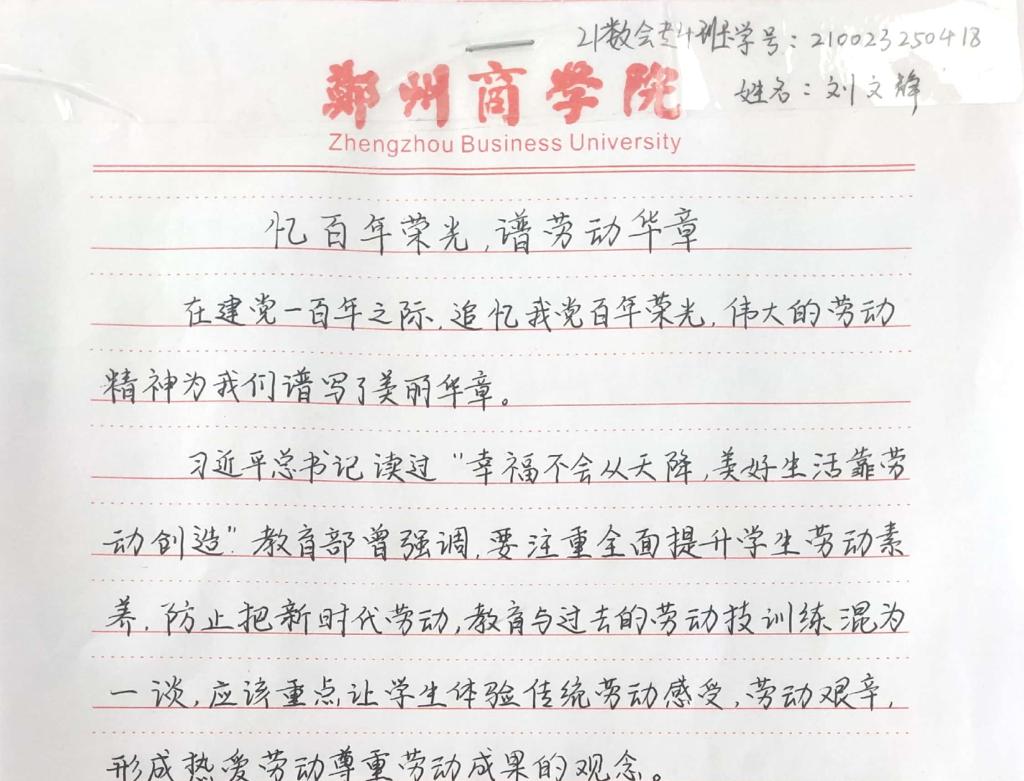 21数会专4班 学号：210023250418
姓名：刘文静
郑州商学院
Zhengzhou Business University
忆百年荣光，谱劳动华章
在建党一百年之际，追忆我党百年荣光，伟大的劳动
精神为我们谱写了美丽华章。
习近平总书记读过“幸福不会从天降，美好生活靠劳
动创造”。教育部曾强调，要注重全面提升学生劳动素
养，防止把新时代劳动，教育与过去的劳动技训练混为
一谈，应该重点让学生体验传统劳动感受，劳动艰辛，
形成热爱劳动尊重劳动成果的观念。